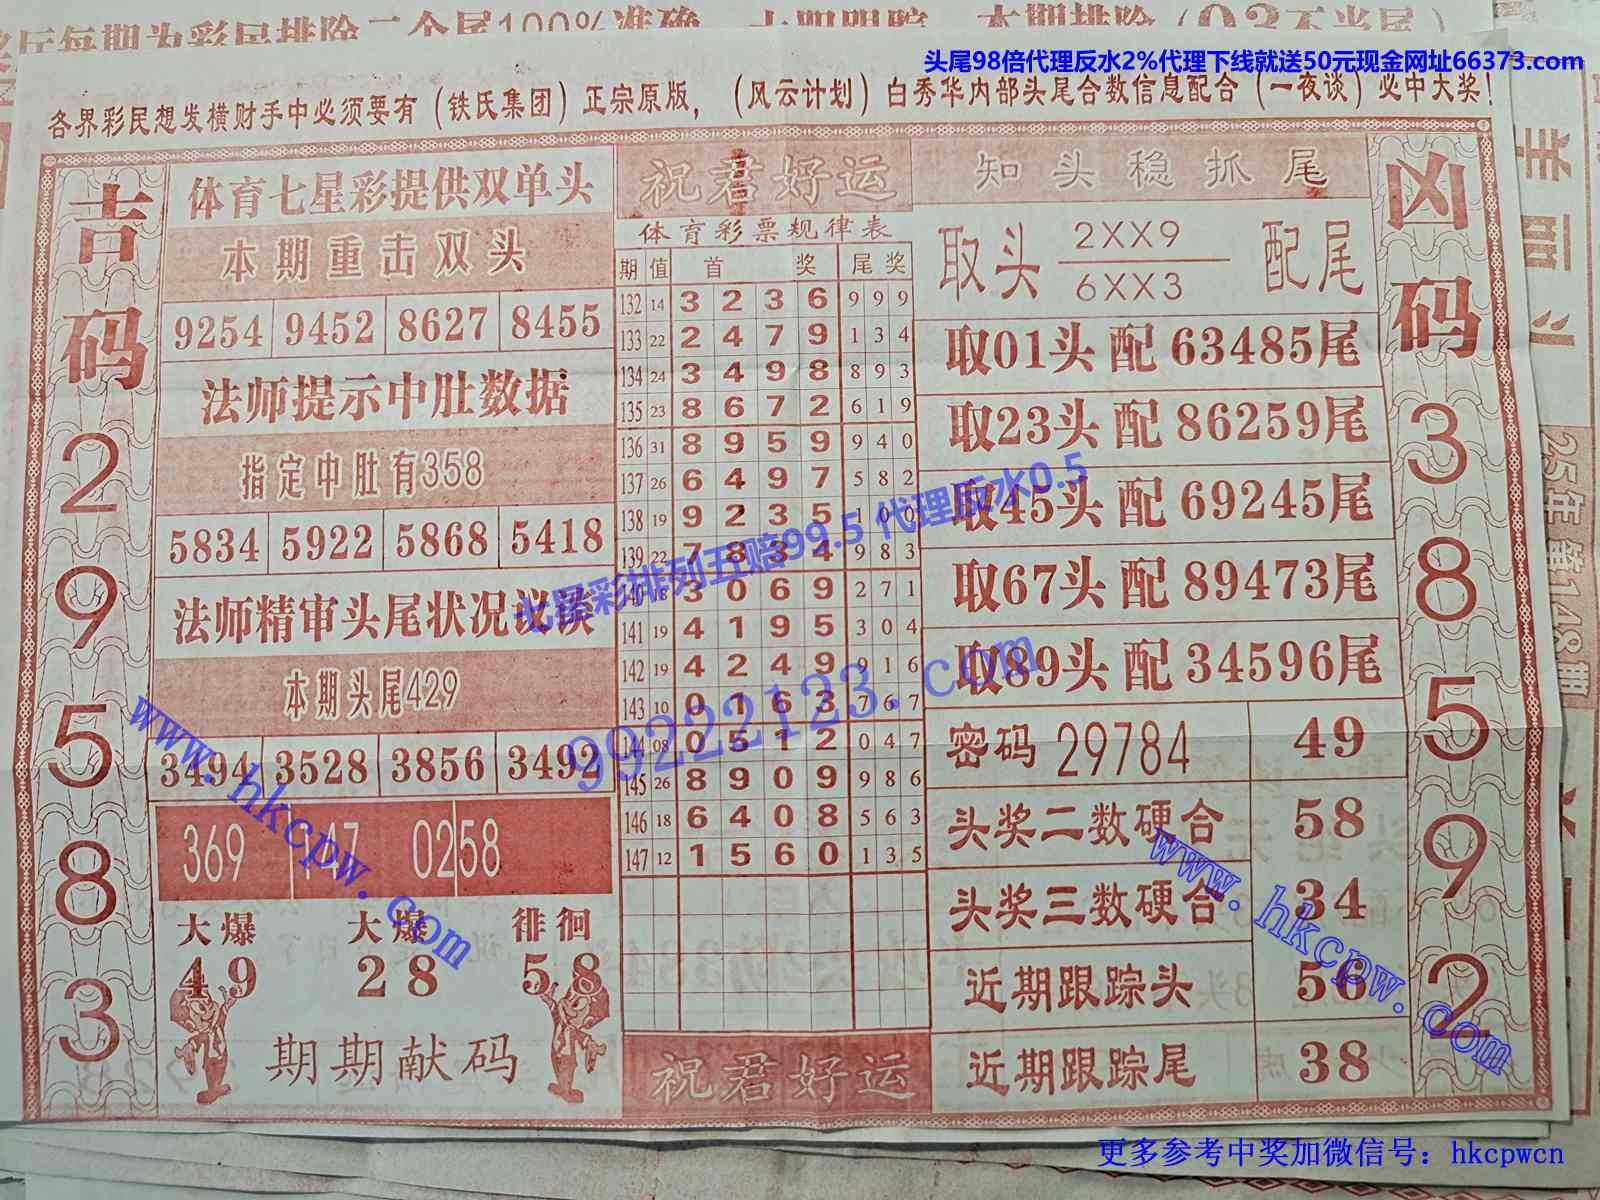 头尾98倍代理反水2%代理下线就送50元现金网址66373.com
各界彩民想发横财手中必须要有(铁氏集团)正宗原版,(风云计划)白秀华内部头尾合数信息配合(一夜谈)必中大奖!
吉码
2
9
5
8
3
体育七星彩提供双单头
本期重击双头
9254 9452 8627 8455
法师提示中肚数据
指定中肚有358
5834 5922 5868 5418
法师精审头尾状况议谈
本期头尾429
3494 3528 3856 3492
369 147 0258
大爆 大爆 徘徊
49 28 58
期期献码
祝君好运
体育彩票规律表
期 值 首 奖 尾 奖
132 14 3 2 3 6 9 9 9
133 22 2 4 7 9 1 3 4
134 24 3 4 9 8 8 9 3
135 23 8 6 7 2 6 1 9
136 31 8 9 5 9 9 4 0
137 26 6 4 9 7 5 8 2
138 19 9 2 3 5 1 0 0
139 22 7 8 3 4 9 8 3
140 18 3 0 6 9 2 7 1
141 19 4 1 9 5 3 0 4
142 19 4 2 4 9 9 1 6
143 10 0 1 6 3 7 6 7
144 08 0 5 1 2 0 4 7
145 26 8 9 0 9 9 8 6
146 18 6 4 0 8 5 6 3
147 12 1 5 6 0 1 3 5
祝君好运
知头稳抓尾
取头 2XX9 配尾
6XX3
取01头 配 63485尾
取23头 配 86259尾
取45头 配 69245尾
取67头 配 89473尾
取89头 配 34596尾
密码 29784 49
头奖二数硬合 58
头奖三数硬合 34
近期跟踪头 56
近期跟踪尾 38
凶码
3
8
5
9
2
25年第148期
七星彩排列五赔99.5 代理反水0.5
99222123.com
www.hkcpw.com
www.hkcpw.com
更多参考中奖加微信号：hkcpwcn